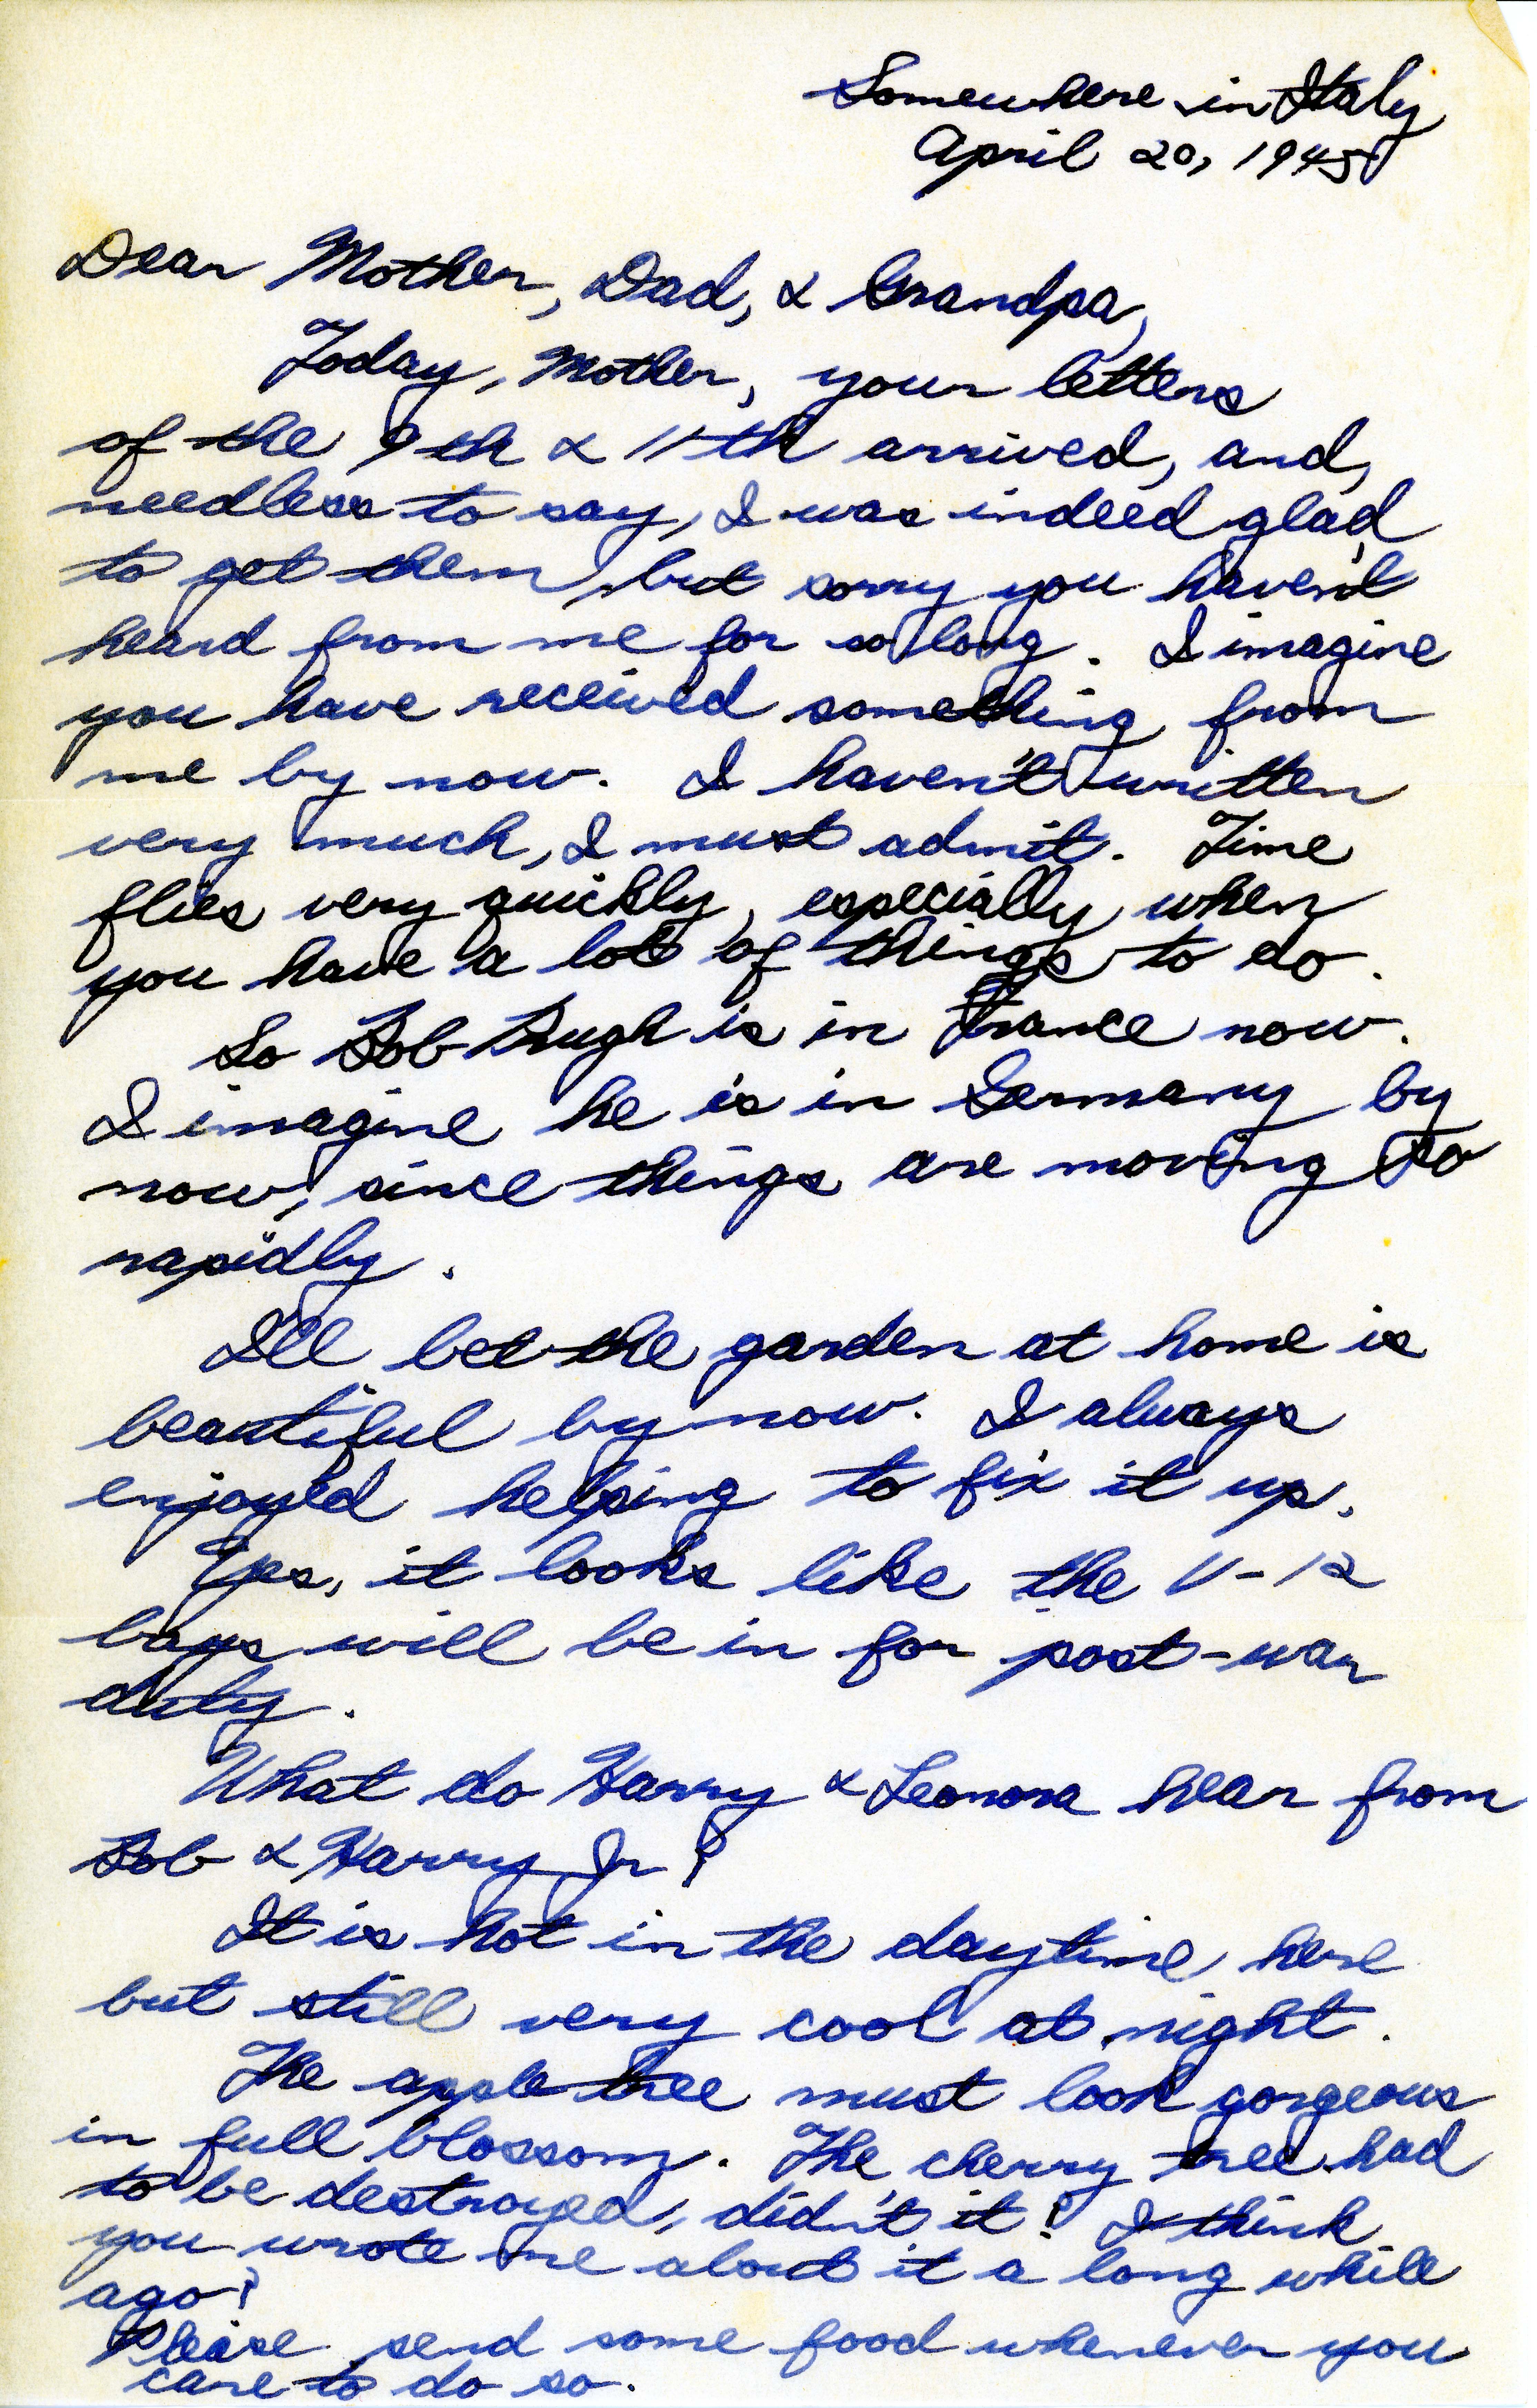 Somewhere in Italy
April 20, 1945
Dear Mother, Dad, & Grandpa,
Today, Mother, your letters
of the 9th & 11th arrived, and,
needless to say, I was indeed glad
to get them, but sorry you haven't
heard from me for so long. I imagine
you have received something from
me by now. I haven't written
very much, I must admit. Time
flies very quickly, especially when
you have a lot of things to do.
So Bob Pugh is in France now.
I imagine he is in Germany by
now, since things are moving so
rapidly.
I'll bet the garden at home is
beautiful by now. I always
enjoyed helping to fix it up.
Yes, it looks like the V-12
boys will be in for post-war
duty.
What do Harry & Leonora hear from
Bob & Harry Jr?
It is hot in the daytime here
but still very cool at night.
The apple tree must look gorgeous
in full blossom. The cherry tree had
to be destroyed, didn't it? I think
you wrote me about it a long while
ago?
Please send some food whenever you
care to do so.